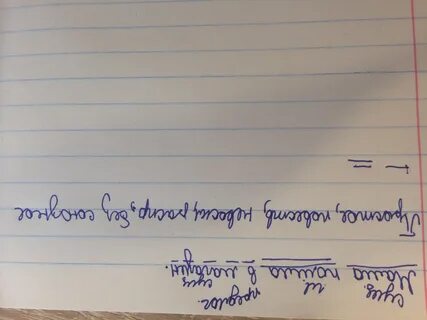 сущ. гл. предлог. сущ.
Мама пошла в магазин.
Простое, повеств, невоскл, распр, без союзное